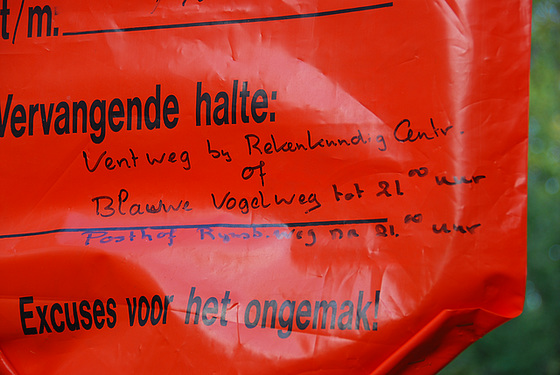 t/m.
Vervangende halte:
Ventweg by Rekenkundig Centr.
of
Blauwe Vogelweg tot 21⁰⁰ uur
Posthof Rynsb. weg na 21.⁰⁰ uur
Excuses voor het ongemak!